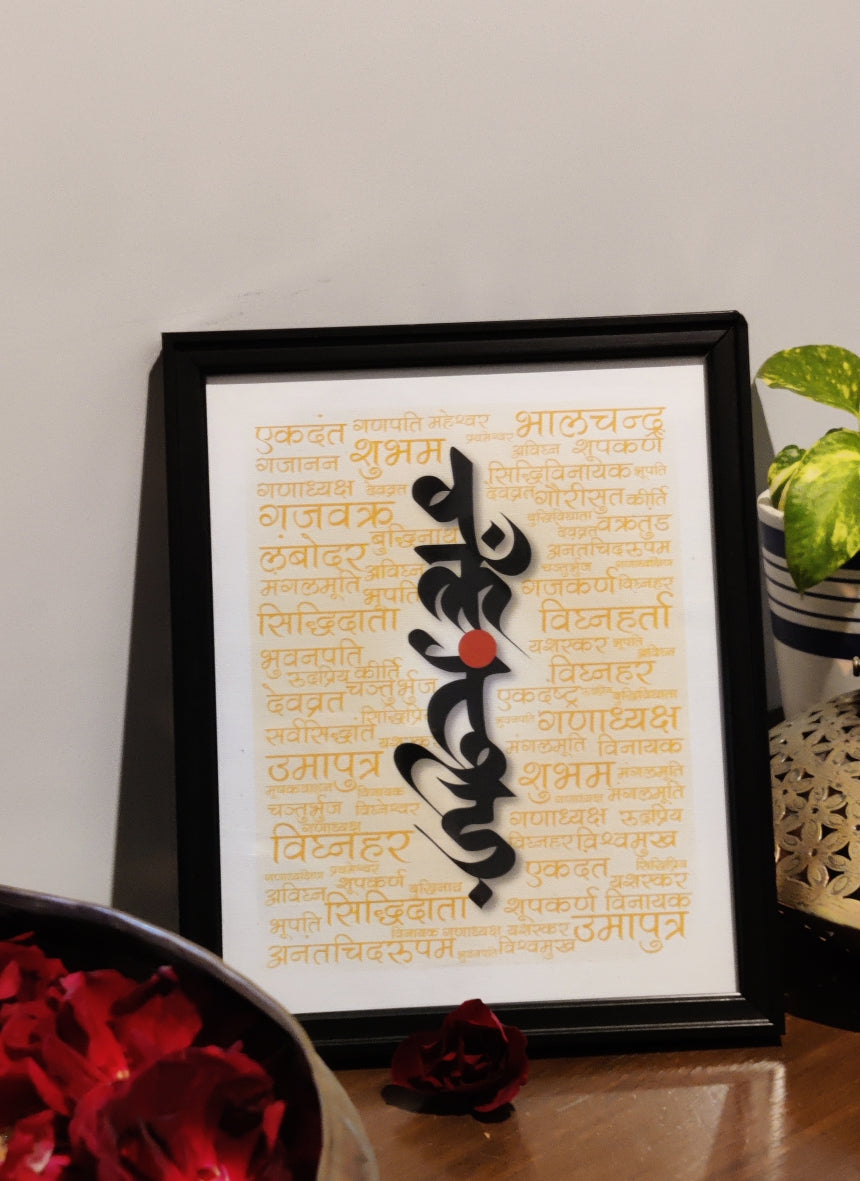 एकदंत गणपति महेश्वर भालचन्द्र
गजानन शुभम प्रथमेश्वर अविघ्न शूपकर्ण
सिद्धिविनायक भूपति
गणाध्यक्ष देवव्रत देवव्रत गौरीसुत कीर्ति
गजवक्र बुद्धिविधाता वक्रतुंड
बुद्धिनाथ देवव्रत
लंबोदर अनंतचिदरूपम
अविघ्न चर्तुभुज
मंगलमूर्ति भूपति गजकर्ण विघ्नहर
सिद्धिदाता विघ्नहर्ता
यशस्कर भूपति
भुवनपति अविघ्न
रुद्रप्रिय कीर्ति विघ्नहर
देवव्रत चर्तुर्भुज एकदंष्ट्र बुद्धिविधाता
सिद्धिप्रि भुवनपति गणाध्यक्ष
सर्वसिद्धांत यशस्क मंगलमूर्ति विनायक
उमापुत्र शुभम मंगलमूर्ति
विनायक गणाध्यक्ष मंगलमूर्ति
चर्तुर्भुज विघ्नेश्वर गणाध्यक्ष रुद्रप्रिय
गणाध्यक्ष
विघ्नहर विघ्नहर विश्वमुख
प्रथमेश्वर एकदंत सिद्धिप्रिय
अविघ्न शूपकर्ण बुद्धिनाथ यशस्कर
भूपति सिद्धिदाता शूपकर्ण विनायक
विनायक गणाध्यक्ष यशस्कर उमापुत्र
अनंतचिदरूपम भुवनपति विश्वमुख